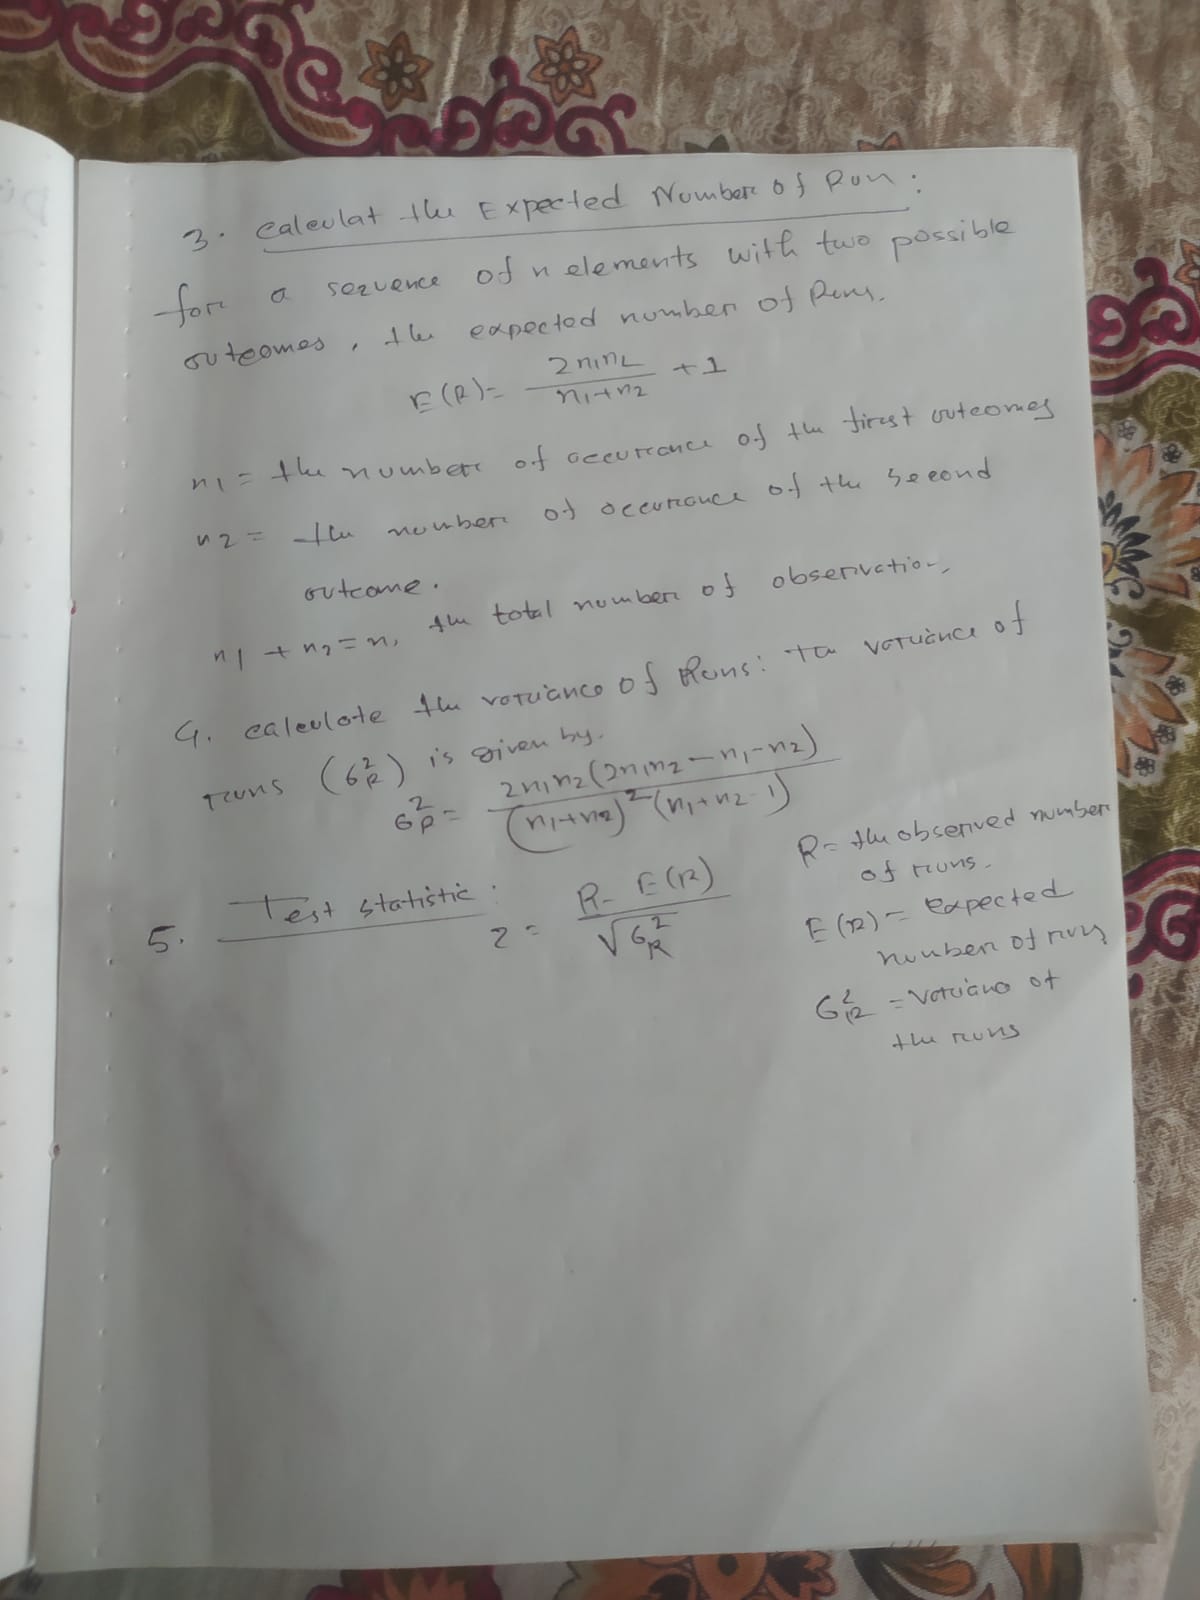 3. Calculat the Expected Number of Run:
for a sequence of n elements with two possible
outcomes, the expected number of Runs.
E(R) = 2n1n2 / n1+n2 + 1
n1 = the number of occurrance of the first outcomes
n2 = the number of occurance of the second
outcome.
n1 + n2 = n, the total number of observation,
4. calculate the variance of Runs: the variance of
runs (σ²R) is given by.
σ²R = 2n1n2(2n1n2 - n1 - n2) / (n1+n2)²(n1+n2-1)
5. Test statistic:
Z = R - E(R) / √σ²R
R = the observed number
of runs.
E(R) = expected
number of runs
σ²R = Variance of
the runs